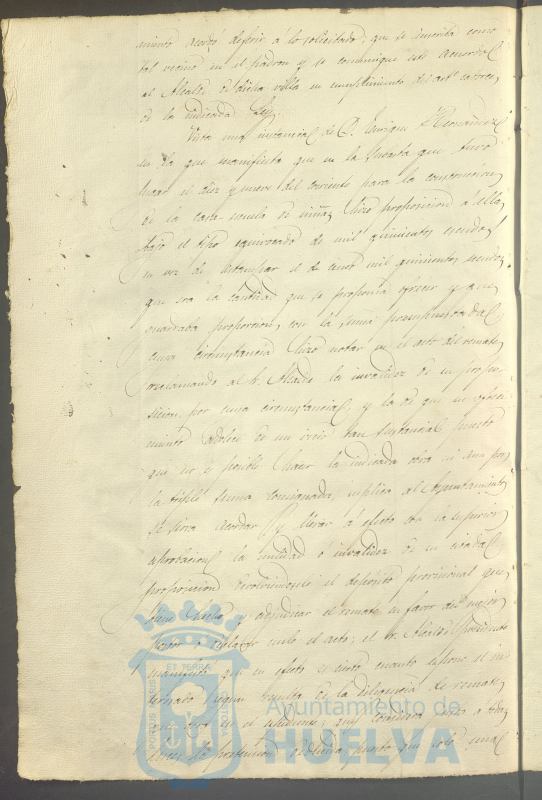 miento acordo deferir á lo solicitado, que se inscriba como
tal vecino en el padron y se comunique este acuerdo
al Alcalde de dicha villa en cumplimiento del artº catorce
de la indicada Ley.
Vista una instancia de D. Enrique Hernandez
en la que manifiesta que en la subasta que tuvo
lugar el diez y nueve del corriente para la construccion
de la casa-escuela de niñas, hizo proposicion á ella
bajo el tipo equivocado de mil quinientos escudos
en vez de estampar el de cinco mil quinientos escudos
que era la cantidad que se proponia ofrecer y que
guardaba proporcion con la suma presupuestada
cuya circunstancia hizo notar en el acto del remate
reclamando al Sr. Alcalde la invalidez de su propo-
sicion por cuya circunstancia, y la de que su ofreci-
miento adolece de un vicio tan sustancial puesto
que no es posible hacer la indicada obra ni aun por
la doble suma consignada, suplica al Ayuntamiento
se sirva acordar y llevar á efecto con la superior
aprobacion la nulidad ó invalidez de su citada
proposicion devolviendole el deposito provisional que
tiene hecho y adjudicar el remate en favor del mejor
postor o declarar nulo el acto; el Sr. Alcalde Presidente
manifestó que en efecto es cierto cuanto espone el in-
teresado segun resulta de la diligencia de remate
que obra en el espediente; que
la pretension puesto que solo
Ayuntamiento de
HUELVA
PORTUS MARIS
ET TERRÆ